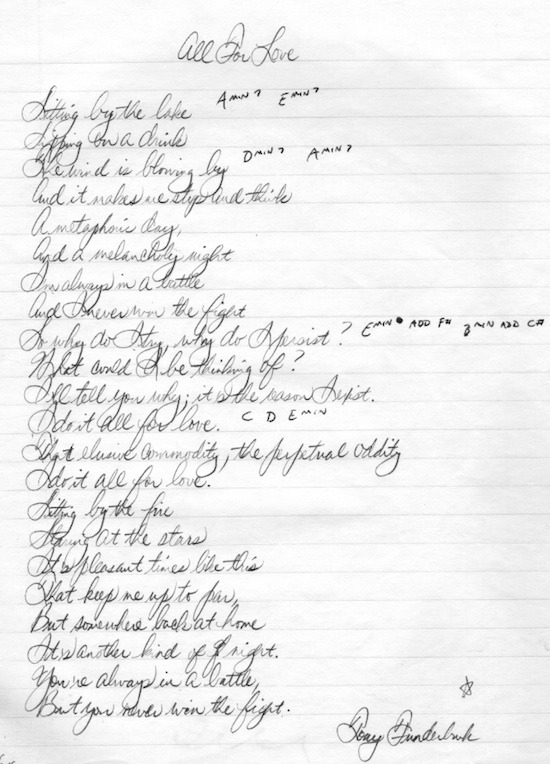 All For Love
Sitting by the lake AMIN7 EMIN7
Sipping on a drink
The wind is blowing by DMIN7 AMIN7
And it makes me stop and think
A metaphoric day,
And a melancholy night
I'm always in a battle
And I never won the fight
So why do I try, why do I persist? EMIN ADD F# BMIN ADD C#
What could I be thinking of?
I'll tell you why; it is the reason I exist.
I do it all for love. C D EMIN
That elusive commodity, the perpetual oddity
I do it all for love.
Sitting by the fire
Staring at the stars
It's pleasant times like this
That keep me up to par,
But somewhere back at home
It's another kind of night.
You're always in a battle,
But you never won the fight.
Tony Funderburk